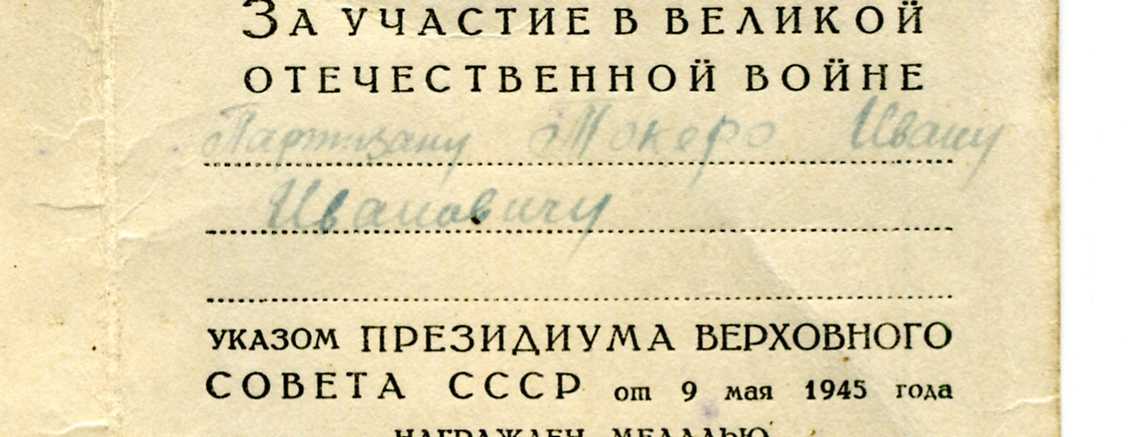 За участие в Великой
Отечественной войне
Партизану Мокеро Ивану
Ивановичу
указом ПРЕЗИДИУМА ВЕРХОВНОГО
СОВЕТА СССР от 9 мая 1945 года
НАГРАЖДЕН МЕДАЛЬЮ